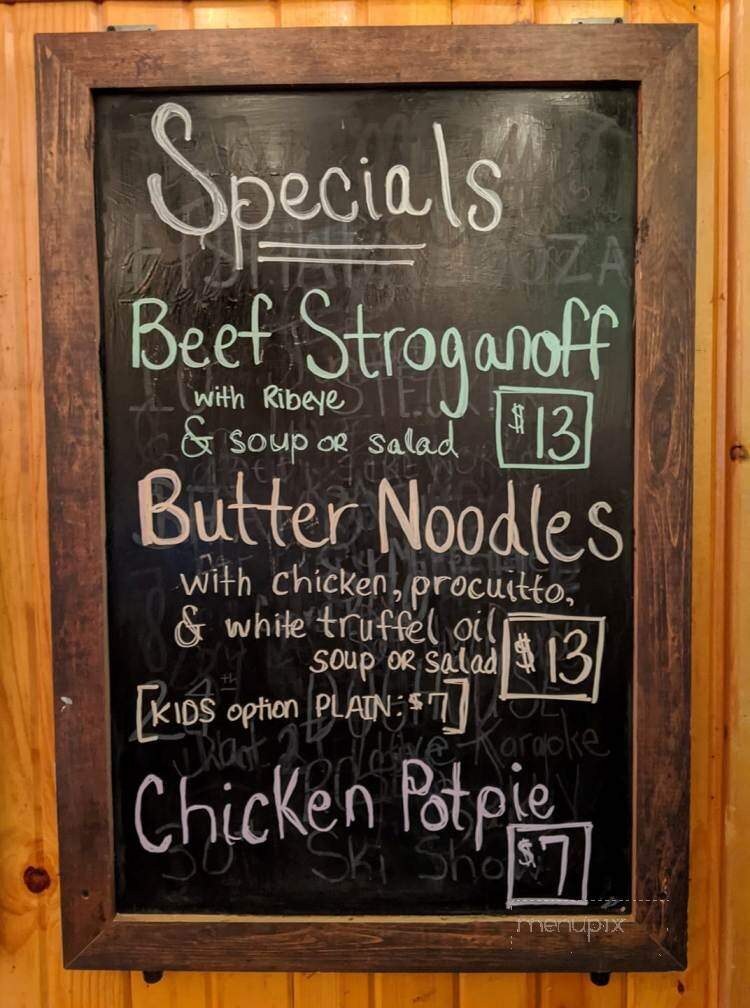 Specials
Beef Stroganoff
with Ribeye
& soup OR salad $13
Butter Noodles
with chicken, procuitto,
& white truffel oil
soup OR salad $13
[KIDS option PLAIN: $7]
Karaoke
Chicken Potpie
$7
Ski Show
menupix